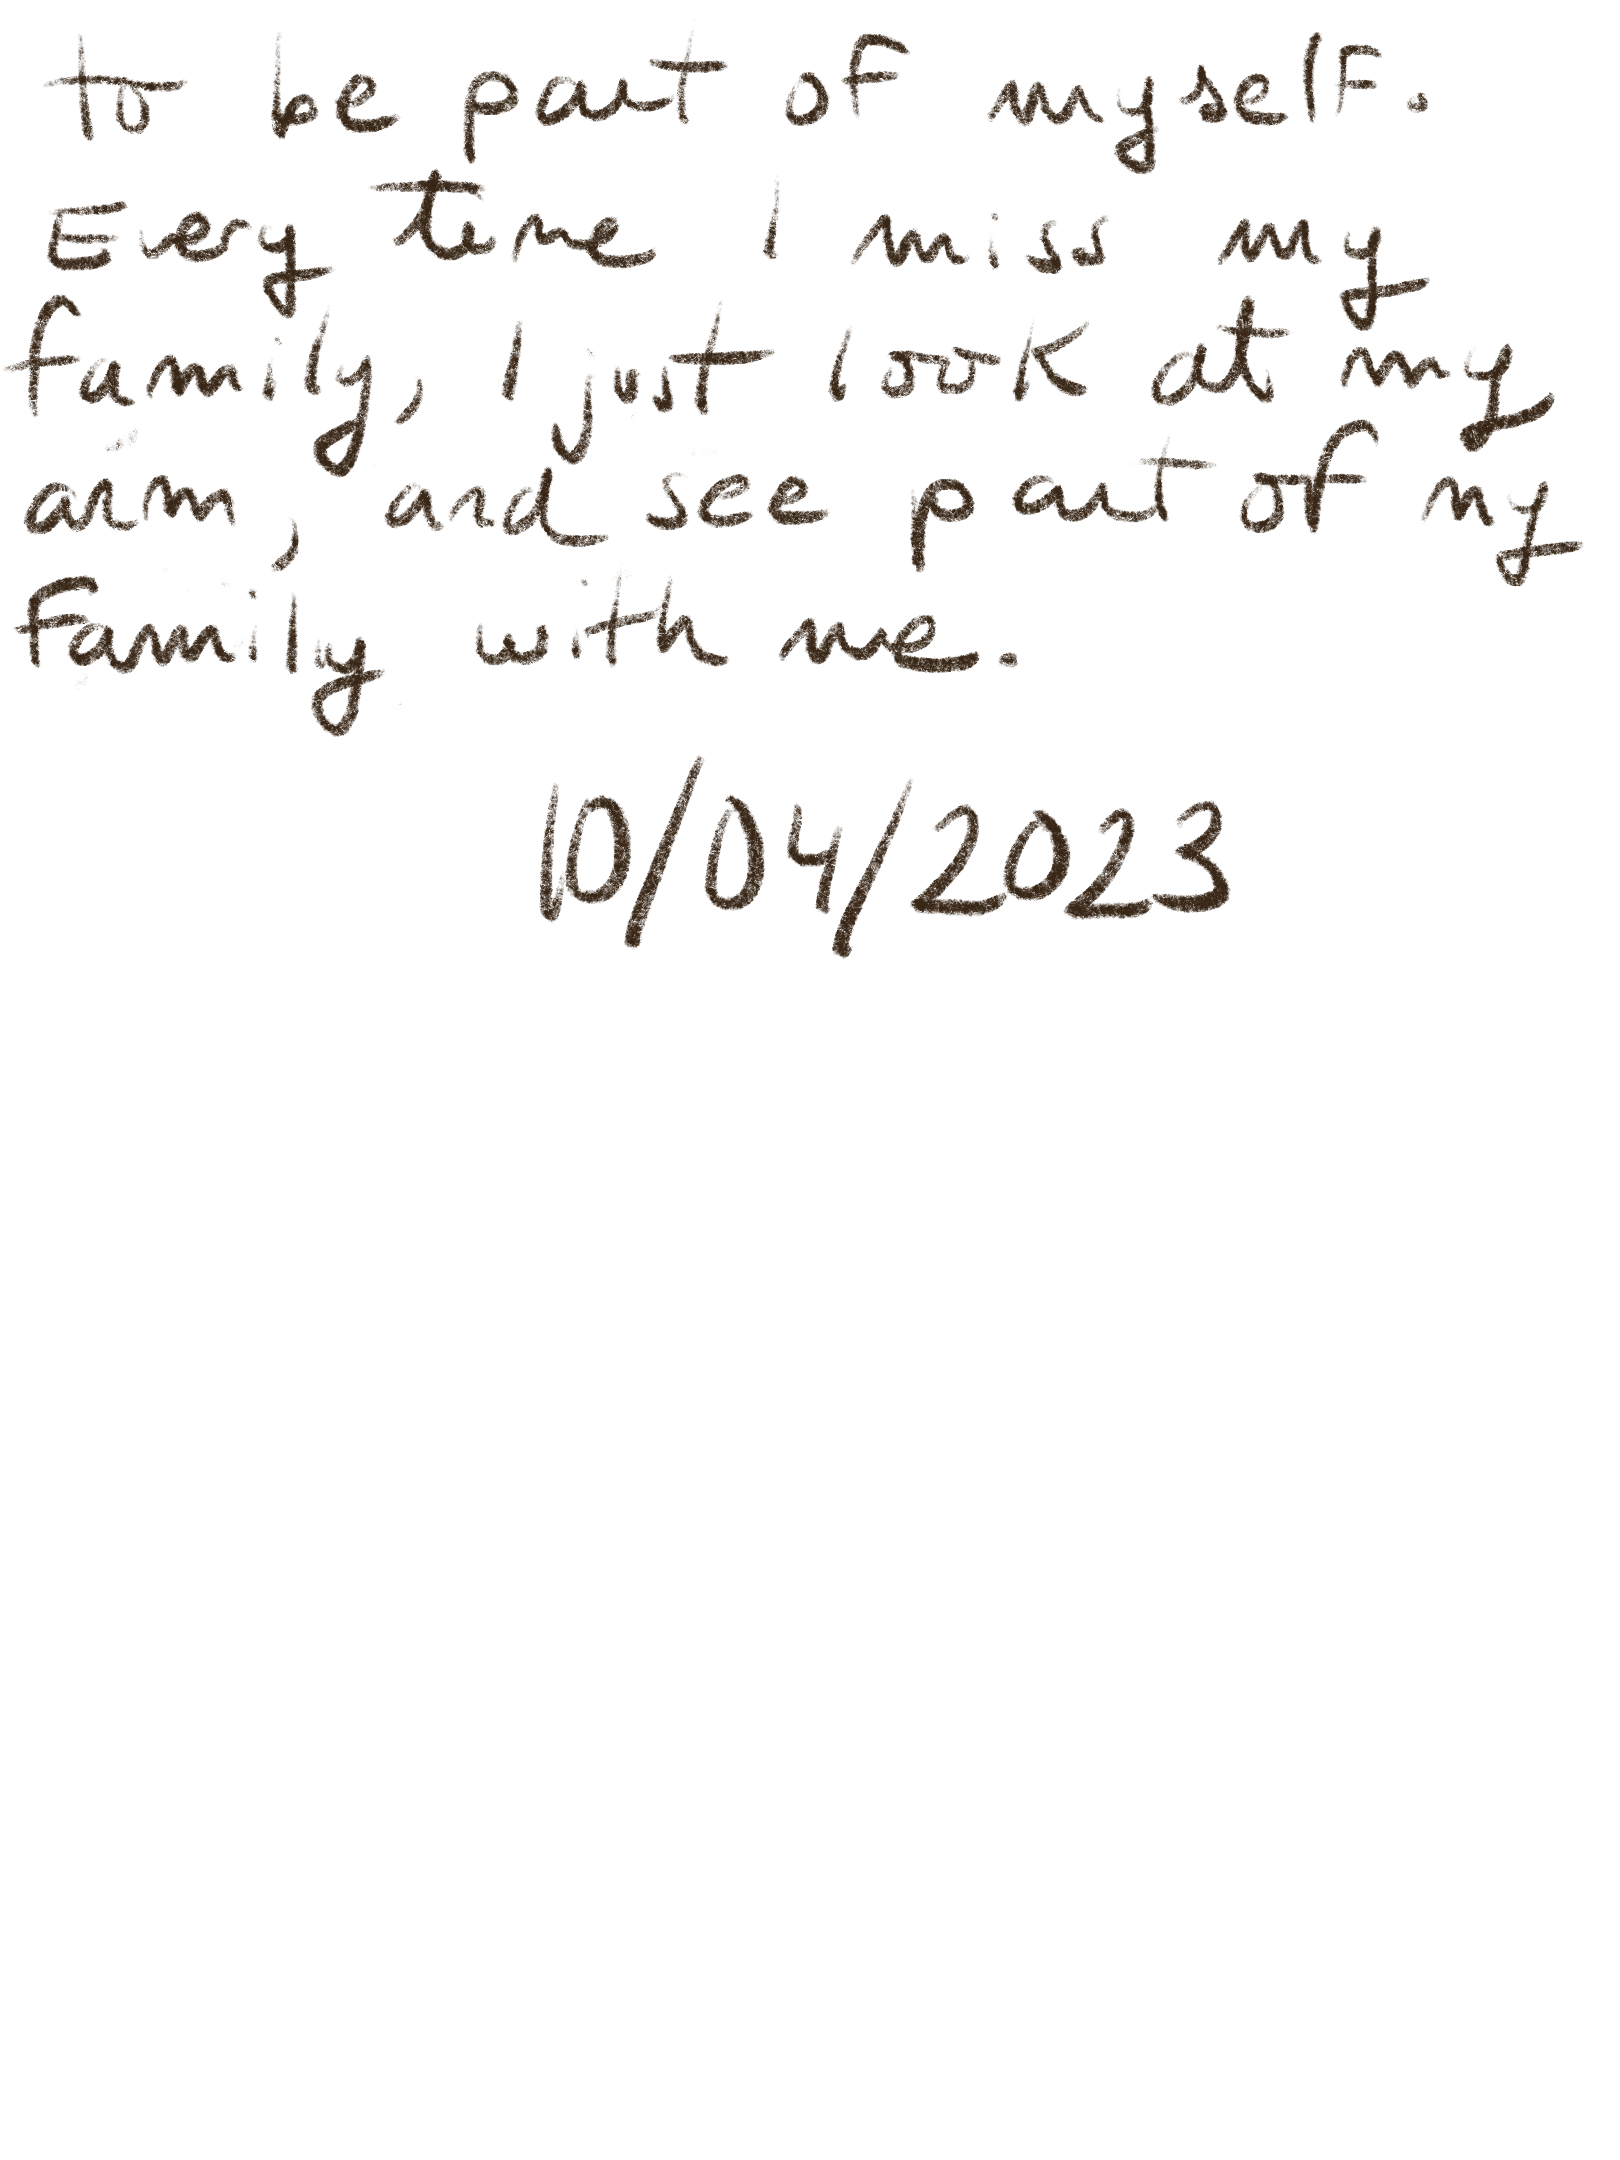 to be part of myself.
Every time I miss my
family, I just look at my
arm, and see part of my
family with me.
10/04/2023